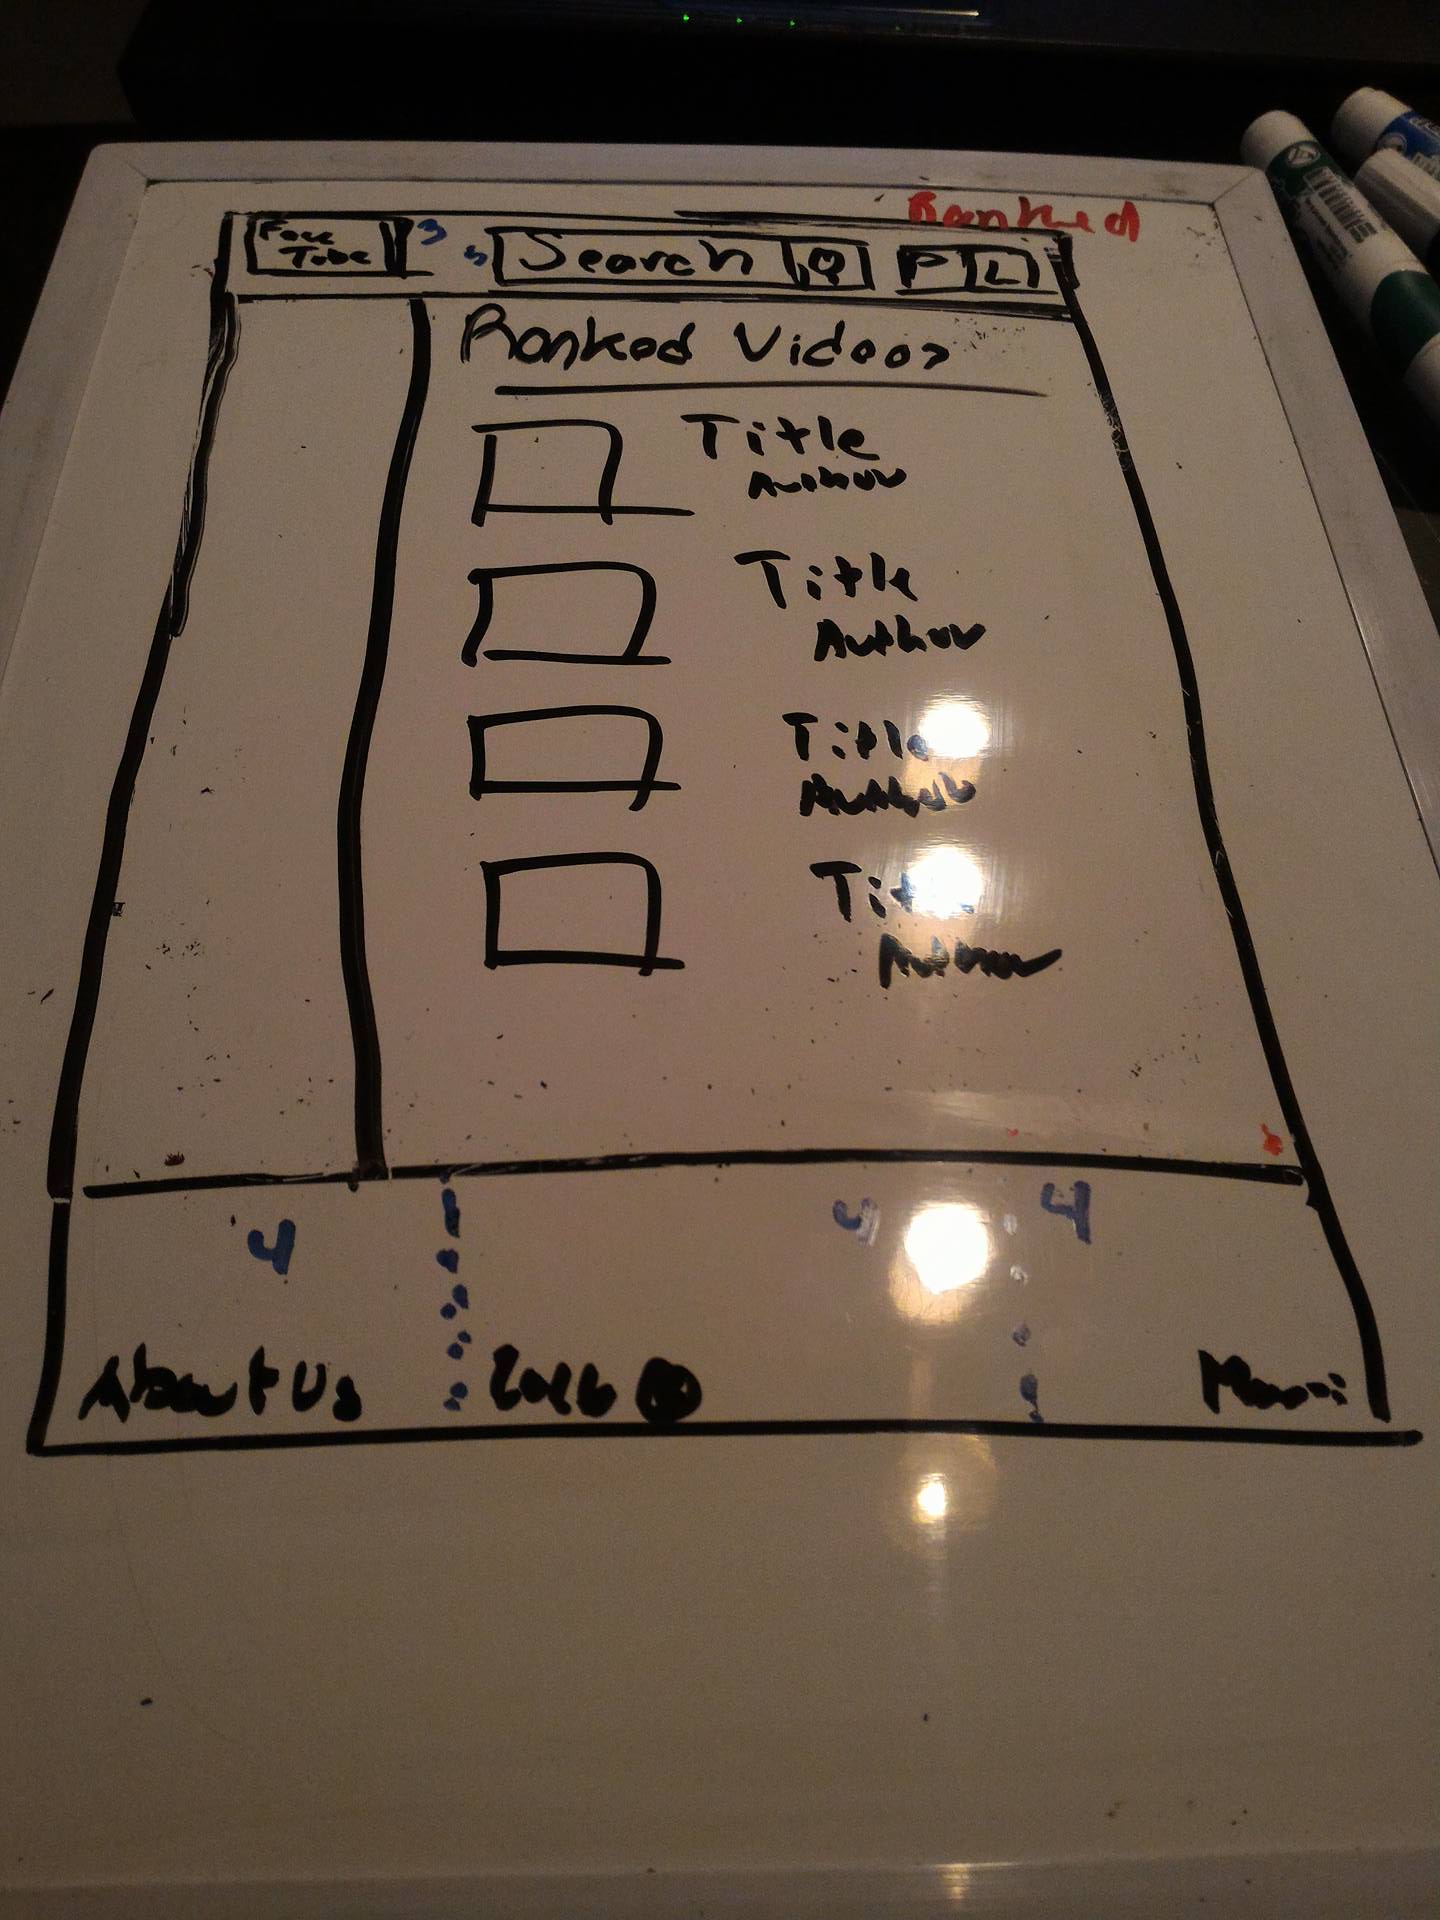 Ranked
Face
Tube
3
Search
P L
Ranked Videos
Title
Author
Title
Author
Title
Author
Title
Author
4
4
4
About Us